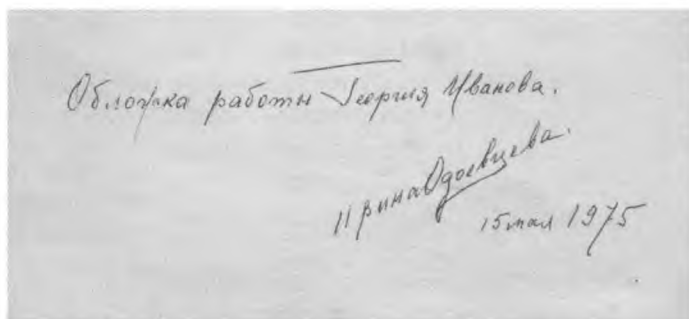 Обложка работы Георгия Иванова.
Ирина Одоевцева.
15 мая 1975